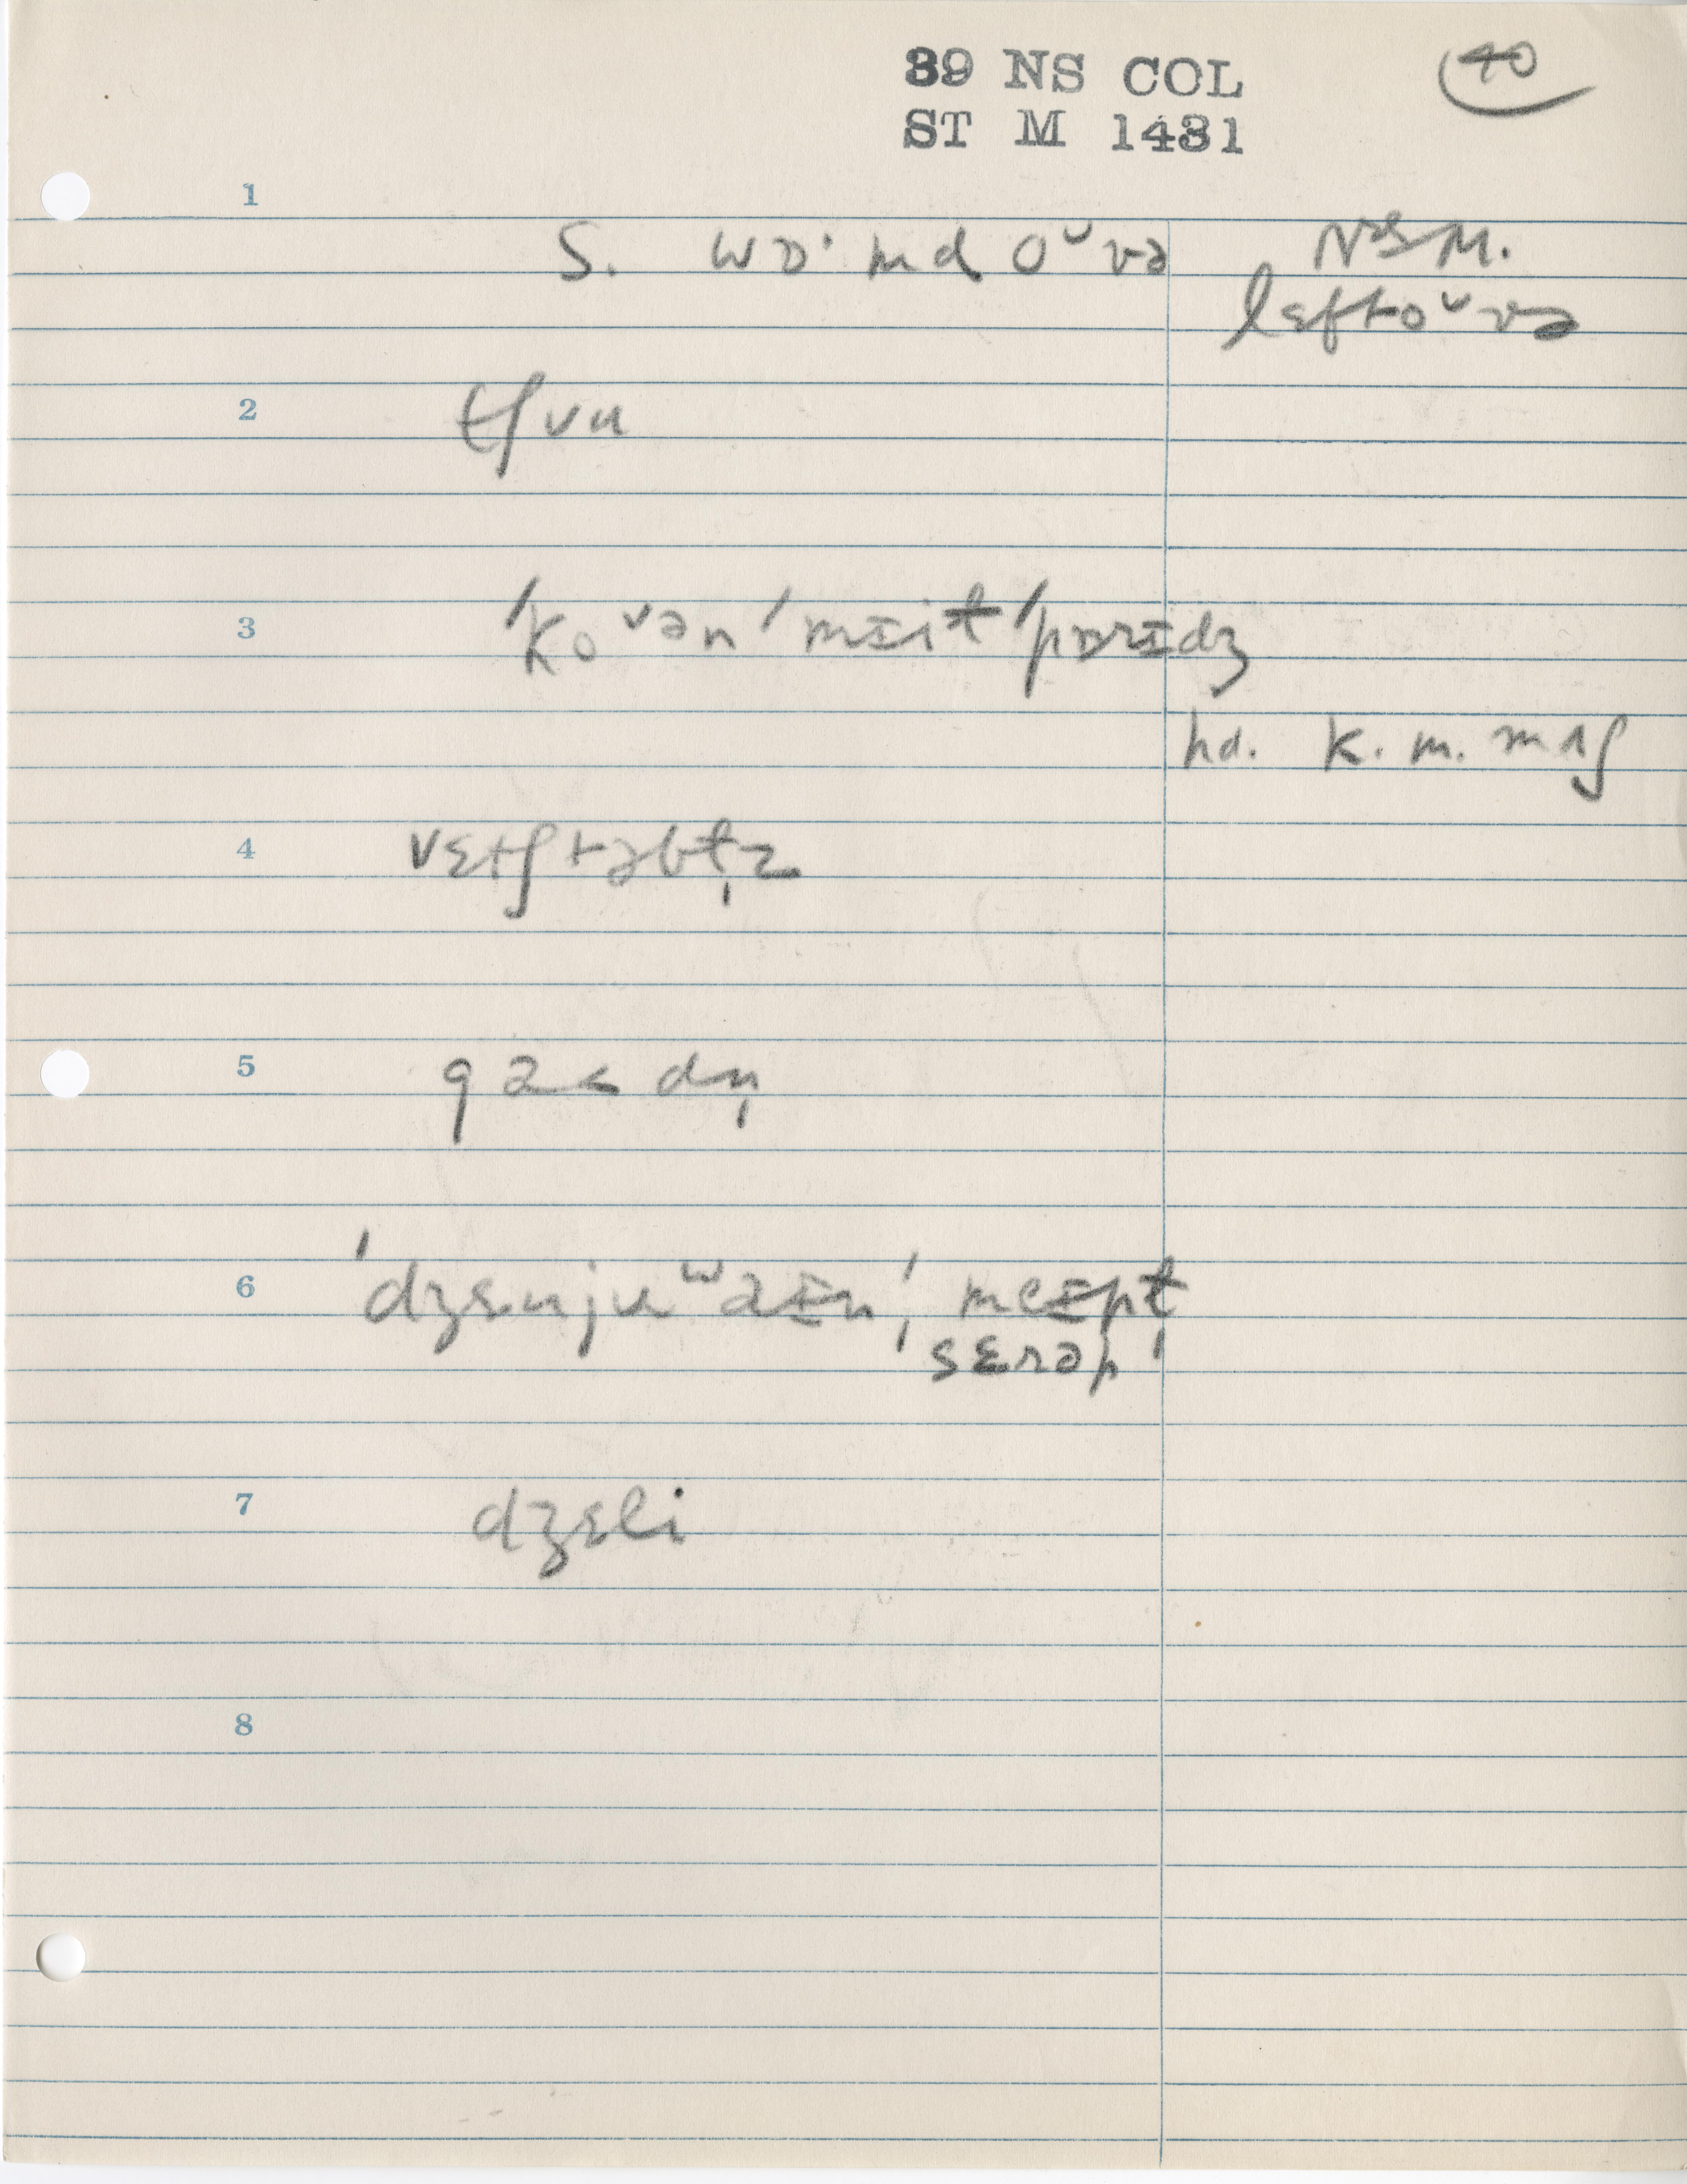 39 NS COL
ST M 1431
40
1
S. wɒ·md oᵛvə
N.S.M.
lɛftoᵛvə
2
tʃvu
3
ˈkoᵛənˈmɪitˈpɒrɪdʒ
hd. k. m. mʌʃ
4
vɛtʃtəbɫ̩z
5
gа<dn̩
6
ˈdʒɛnjuʷaɪnˈ, meɪpɫ
sɛrəpˈ
7
dʒɛli
8